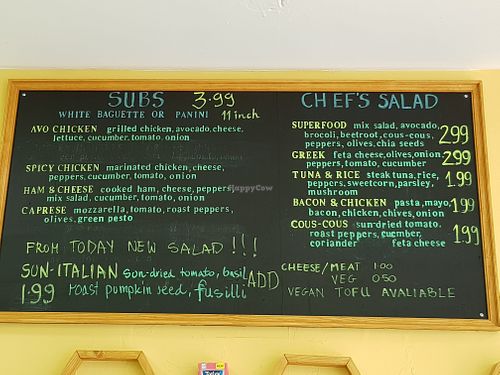 SUBS 3.99
WHITE BAGUETTE OR PANINI 11 inch
AVO CHICKEN grilled chicken, avocado, cheese,
lettuce, cucumber, tomato, onion
SPICY CHICKEN marinated chicken, cheese,
peppers, cucumber, tomato, onion
HAM & CHEESE cooked ham, cheese, peppers
mix salad, cucumber, tomato, onion
CAPRESE mozzarella, tomato, roast peppers,
olives, green pesto
FROM TODAY NEW SALAD !!!
SUN-ITALIAN sun-dried tomato, basil
1.99 roast pumpkin seed, fusilli
CHEF'S SALAD
SUPERFOOD mix salad, avocado,
brocoli, beetroot, cous-cous,
peppers, olives, chia seeds 2.99
GREEK feta cheese, olives, onion
peppers, tomato, cucumber 2.99
TUNA & RICE steak tuna, rice,
peppers, sweetcorn, parsley,
mushroom 1.99
BACON & CHICKEN pasta, mayo,
bacon, chicken, chives, onion 1.99
COUS-COUS sun-dried tomato,
roast peppers, cucmber,
coriander feta cheese 1.99
ADD CHEESE/MEAT 1.00
VEG 0.50
VEGAN TOFU AVALIABLE
HappyCow